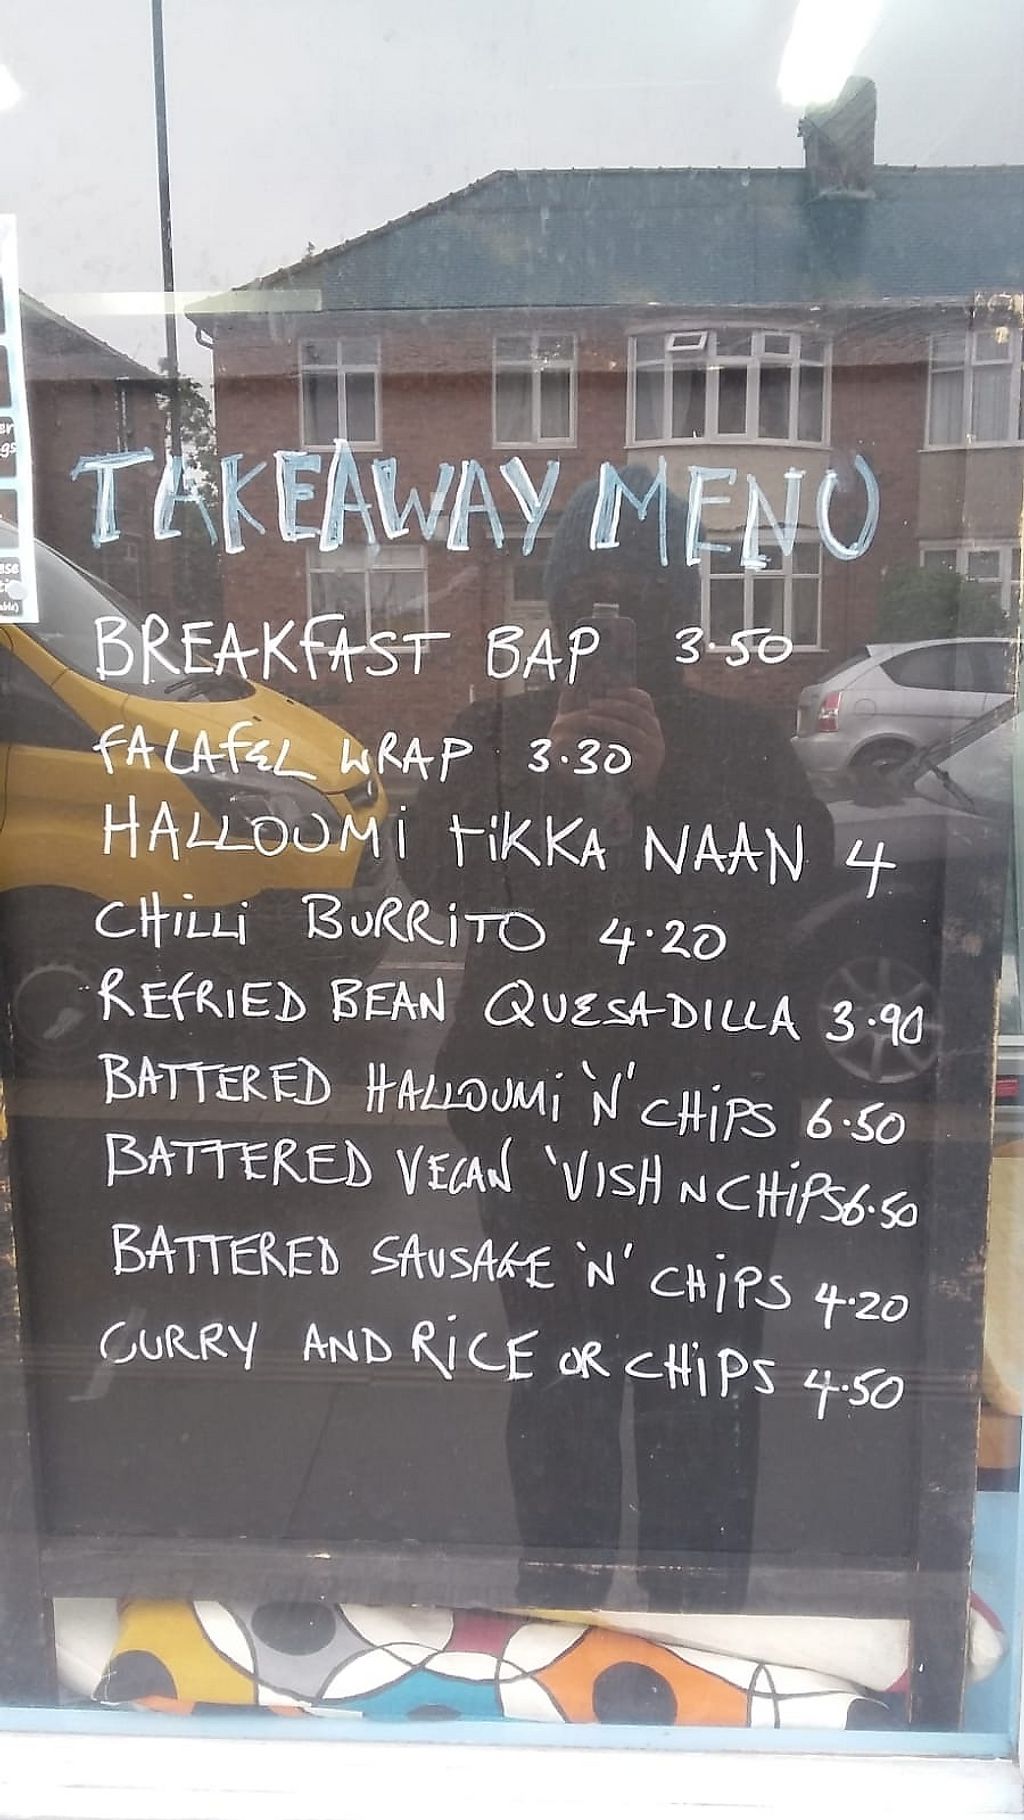 TAKEAWAY MENU
BREAKfAST BAP 3.50
fALAfEL WRAP 3.30
HALLOUMi tiKKA NAAN 4
CHiLLi BURRiTO 4.20
REfRIED BEAN QUESADILLA 3.90
BATTERED HALLOUMi 'N' CHiPS 6.50
BATTERED VEGAN 'VISH N CHiPS 6.50
BATTERED SAUSAGE 'N' CHiPS 4.20
CURRY AND RiCE OR CHiPS 4.50